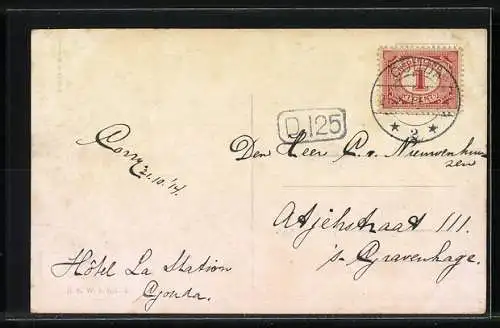 GOUDA
1
CENT
2
D 125
Corry
21.10.'14.
Den Heer C. v. Nieuwenhui
zen
Atjehstraat 111.
's-Gravenhage.
Hôtel La Station
Gouda.